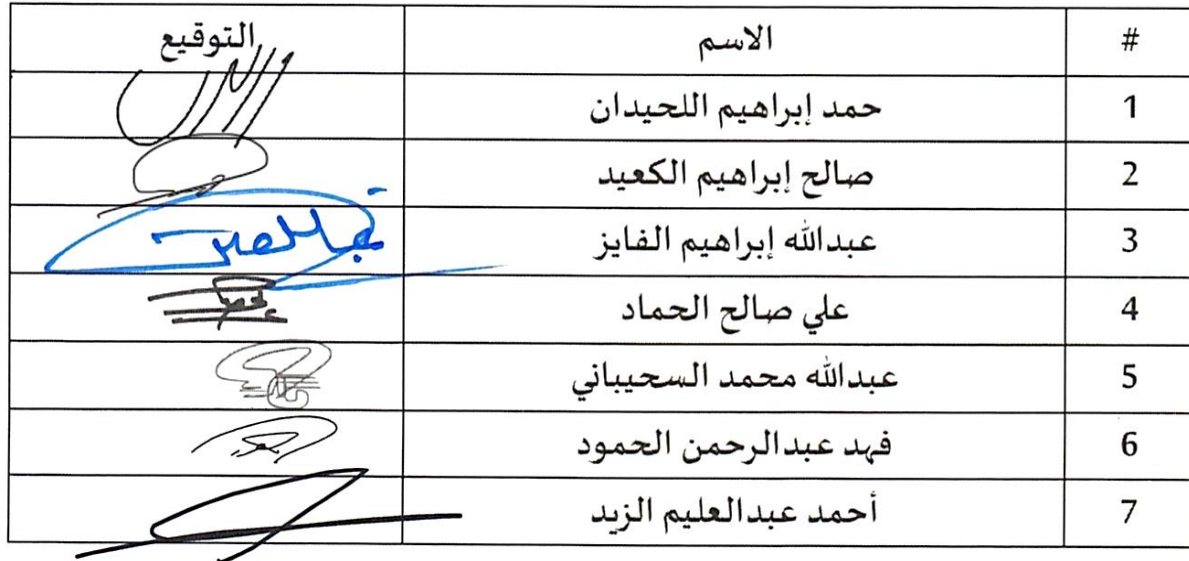 # الاسم التوقيع
1 حمد إبراهيم اللحيدان
2 صالح إبراهيم الكعيد
3 عبدالله إبراهيم الفايز
4 علي صالح الحماد
5 عبدالله محمد السحيباني
6 فهد عبدالرحمن الحمود
7 أحمد عبدالعليم الزيد